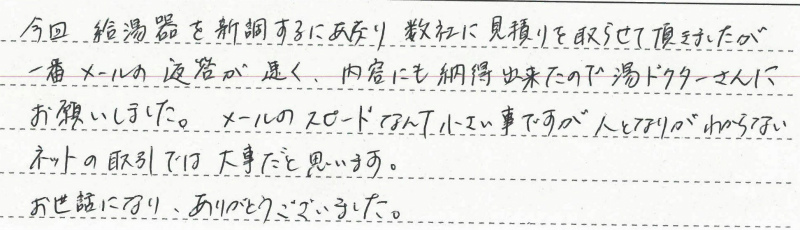 今回 給湯器を新調するにあたり 数社に見積りを取らせて頂きましたが
一番メールの返答が速く、内容にも納得出来たので湯ドクターさんに
お願いしました。メールのスピードなんて小さい事ですが人となりがわからない
ネットの取引では大事だと思います。
お世話になり、ありがとうございました。